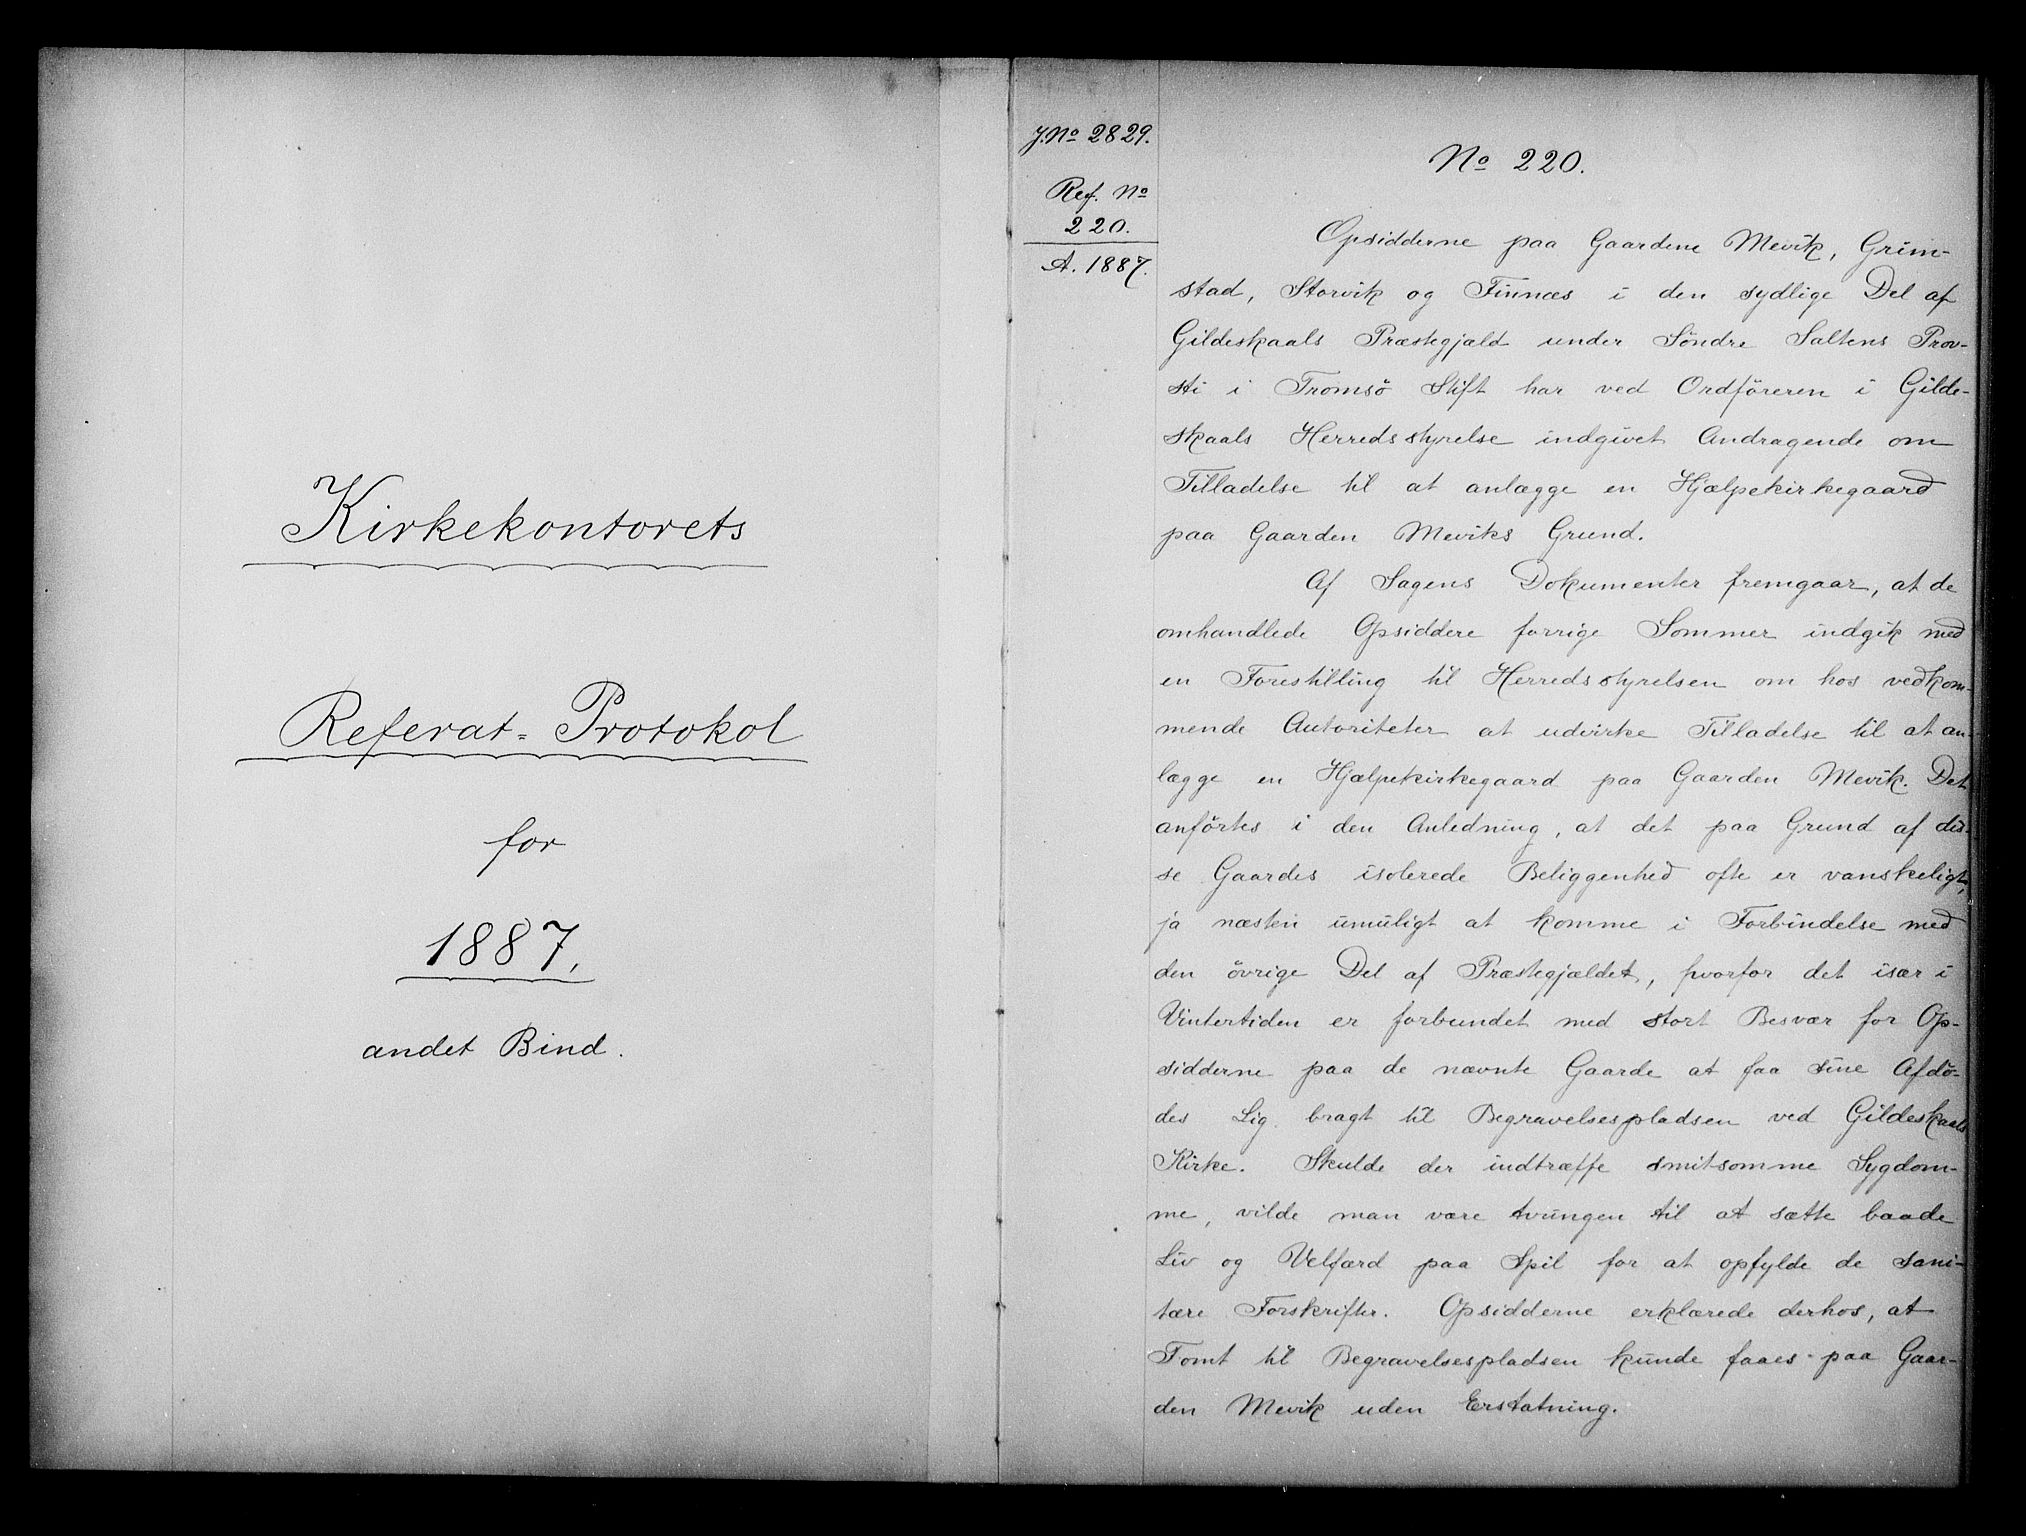 Kirkekontorets
Referat-Protokol
for
1887.
andet Bind.
J. No 2829.
Ref. No
220.
A. 1887.
No 220.
Opsidderne paa Gaardene Mevik, Grim-
stad, Storvik og Finnæs i den sydlige Del af
Gildeskaals Præstegjæld under Söndre Saltens Prov-
sti i Tromsö Stift har ved Ordföreren i Gilde-
skaals Herredsstyrelse indgivet Andragende om
Tilladelse til at anlægge en Hjælpekirkegaard
paa Gaarden Meviks Grund.
Af Sagens Dokumenter fremgaar, at de
omhandlede Opsiddere forrige Sommer indgik med
en Forestilling til Herredsstyrelsen om hos vedkom-
mende Autoriteter at udvirke Tilladelse til at an-
lægge en Hjælpekirkegaard paa Gaarden Mevik. Det
anförtes i den Anledning, at det paa Grund af dis-
se Gaardes isolerede Beliggenhed ofte er vanskeligt,
ja næsten umuligt at komme i Forbindelse med
den övrige Del af Præstegjældet, hvorfor det især i
Vintertiden er forbundet med stort Besvær for Op-
sidderne paa de nævnte Gaarde at faa sine Afdö-
des Lig bragt til Begravelsespladsen ved Gildeskaals
Kirke. Skulde der indtræffe smitsomme Sygdom-
me, vilde man være tvungen til at sætte baade
Liv og Velfærd paa Spil for at opfylde de sani-
tære Forskrifter. Opsidderne erklærede derhos, at
Tomt til Begravelsespladsen kunde faaes paa Gaar-
den Mevik uden Erstatning.